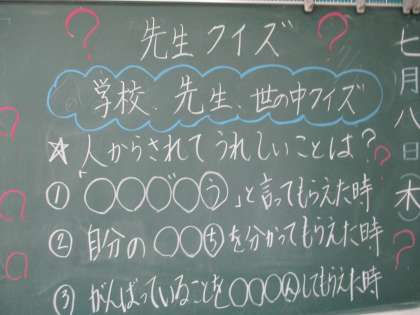 先生クイズ
学校、先生、世の中クイズ
☆人からされてうれしいことは?
①「〇〇〇゛〇う」と言ってもらえた時
②自分の〇〇ちを分かってもらえた時
③がんばっていることを〇〇〇んしてもらえた時
七月八日(木)